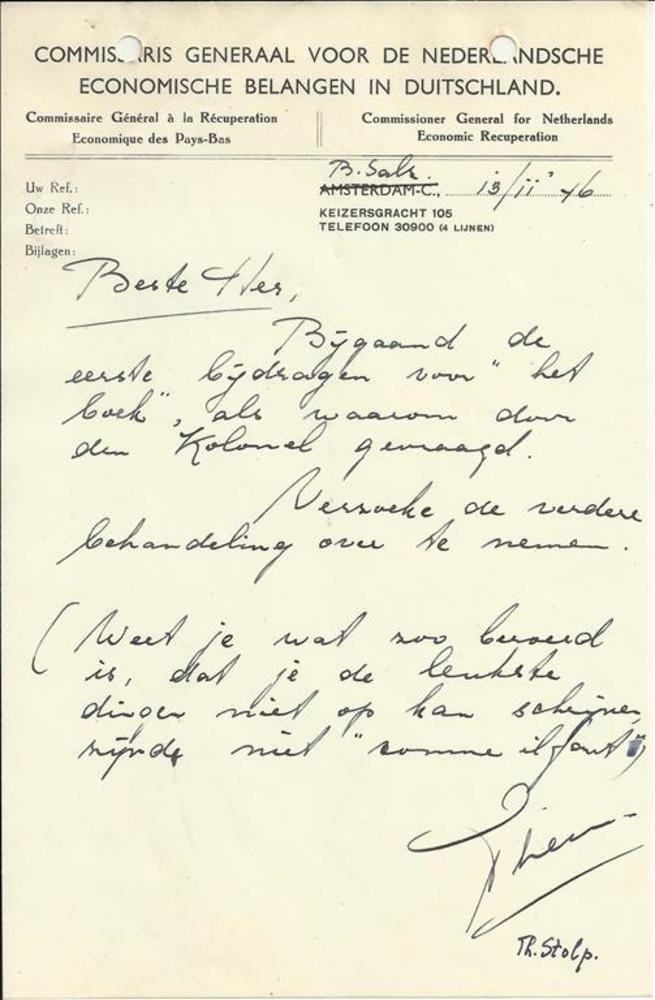 COMMISSARIS GENERAAL VOOR DE NEDERLANDSCHE
ECONOMISCHE BELANGEN IN DUITSCHLAND.
Commissaire Général à la Récuperation
Economique des Pays-Bas
Commissioner General for Netherlands
Economic Recuperation
B. Salz.
Uw Ref.:
AMSTERDAM-C., 13/11 '46
Onze Ref.:
KEIZERSGRACHT 105
Betreft:
TELEFOON 30900 (4 LIJNEN)
Bijlagen:
Beste
Bijgaand de
eerste bijdragen voor "het
boek", als waarom door
den Kolonel gevraagd.
Verzoeke de verdere
behandeling over te nemen.
(Weet je wat zoo beroerd
is, dat je de leukste
dingen niet op kan schrijven
zijnde niet "comme il faut")
Th. Stolp.